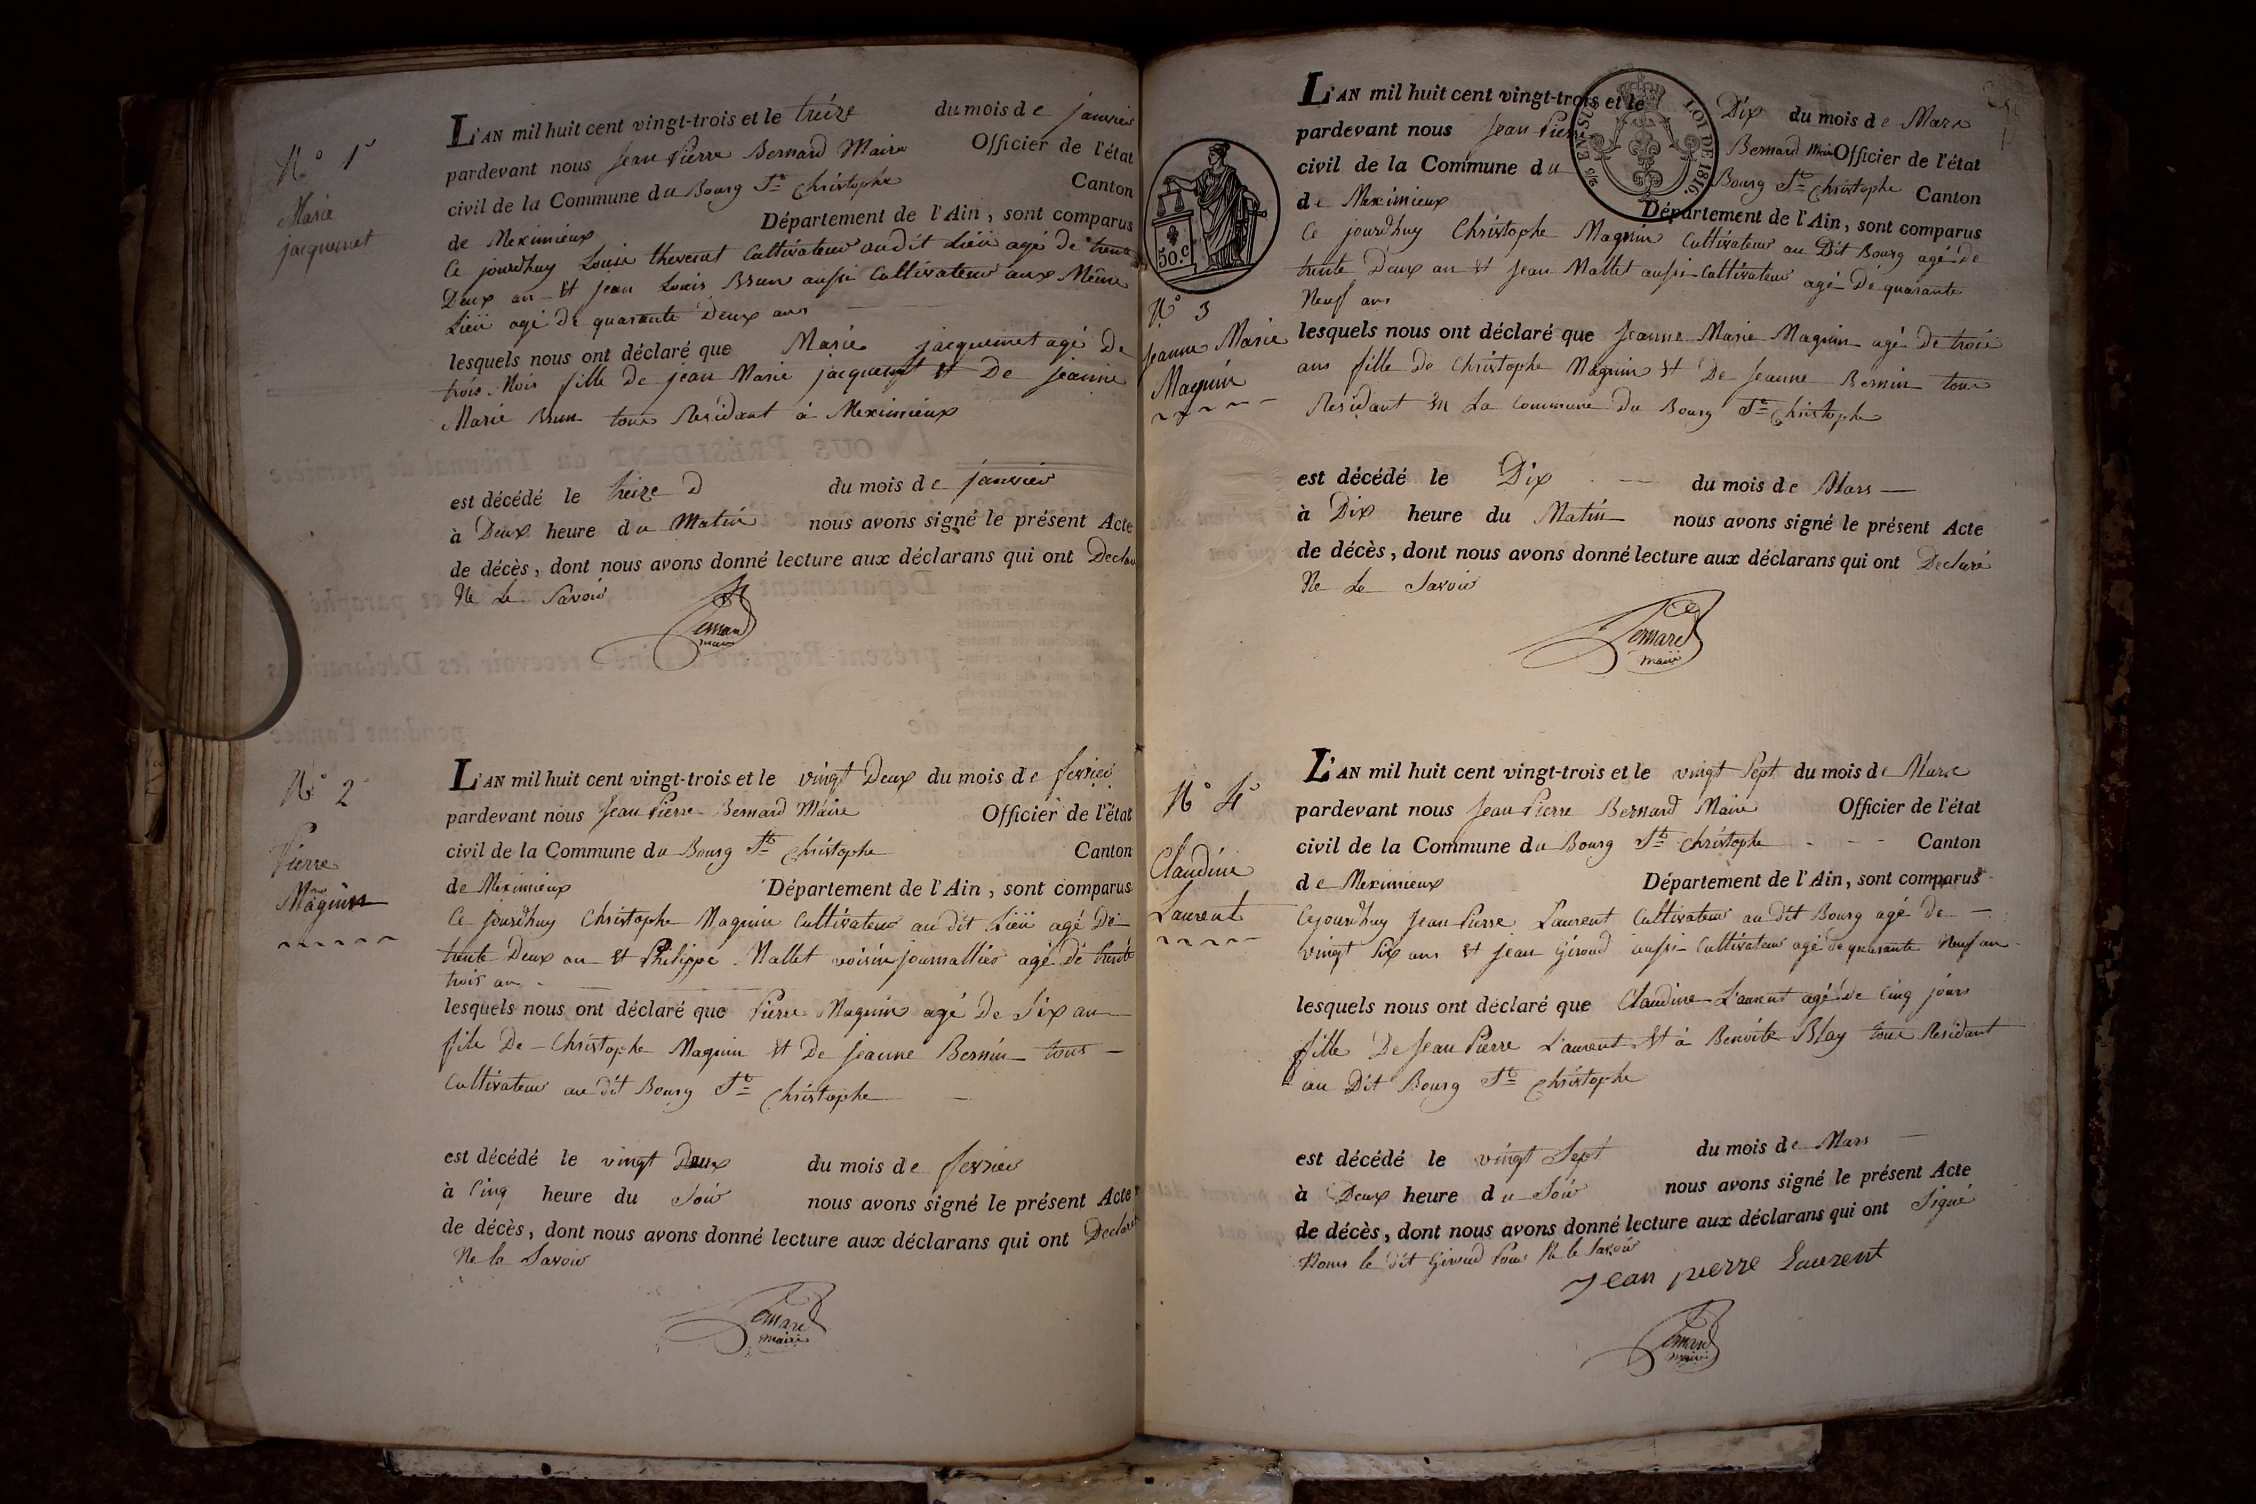 N° 1er
Marie
jacquemet
L'AN mil huit cent vingt-trois et le treize du mois de janvier
pardevant nous Jean Pierre Bernard Maire Officier de l'état
civil de la Commune du Bourg St Christophe Canton
de Meximieux Département de l'Ain, sont comparus
Ce jourd'huy Louis thevenet Cultivateur au dit Lieu agé de trente
Deux an Et Jean Louis Brun aussi Cultivateur aux Même
Lieu agé de quarante Deux ans
lesquels nous ont déclaré que Marie jacquemet agé De
trois Mois fille de Jean Marie jacquemet Et De jeanne
Marie Brun tous Residant à Meximieux
est décédé le treize du mois de janvier
à Deux heure du Matin nous avons signé le présent Acte
de décès, dont nous avons donné lecture aux déclarans qui ont Declaré
Ne Le Savoir
Bernard
maire
N° 2
Pierre
Maguin
L'AN mil huit cent vingt-trois et le vingt Deux du mois de fevrier
pardevant nous Jean Pierre Bernard Maire Officier de l'état
civil de la Commune du Bourg St Christophe Canton
de Meximieux Département de l'Ain, sont comparus
Ce jourd'huy Christophe Maguin Cultivateur au dit Lieu agé De
trente Deux an Et Philippe Mallet voisin journallier agé De trente
trois an
lesquels nous ont déclaré que Pierre Maguin agé De Six an
fils De Christophe Maguin Et De Jeanne Bernin tous
Cultivateur au dit Bourg St Christophe
est décédé le vingt Deux du mois de fevrier
à Cinq heure du Soir nous avons signé le présent Acte
de décès, dont nous avons donné lecture aux déclarans qui ont Declaré
Ne le Savoir
Bernard
maire
EN SUS
LOI DE 1816
50.c
N° 3
Jeanne Marie
Maguin
L'AN mil huit cent vingt-trois et le Dix du mois de Mars
pardevant nous Jean Pierre Bernard Maire Officier de l'état
civil de la Commune du Bourg St Christophe Canton
de Meximieux Département de l'Ain, sont comparus
Ce jourd'huy Christophe Maguin Cultivateur au Dit Bourg agé De
trente Deux an Et Jean Mallet aussi Cultivateur agé De quarante
Neuf ans
lesquels nous ont déclaré que Jeanne Marie Maguin agé De trois
ans fille De Christophe Maguin Et De Jeanne Bernin tous
Residant En La Commune Du Bourg St Christophe
est décédé le Dix du mois de Mars
à Dix heure du Matin nous avons signé le présent Acte
de décès, dont nous avons donné lecture aux déclarans qui ont Declaré
Ne Le Savoir
Bernard
maire
N° 4
Claudine
Laurent
L'AN mil huit cent vingt-trois et le vingt Sept du mois de Mars
pardevant nous Jean Pierre Bernard Maire Officier de l'état
civil de la Commune du Bourg St Christophe Canton
de Meximieux Département de l'Ain, sont comparus
Cejourd'huy Jean Pierre Laurent Cultivateur au dit Bourg agé De
vingt Six ans Et Jean Giroud aussi Cultivateur agé De quarante Neuf an
lesquels nous ont déclaré que Claudine Laurent agé De Cinq jours
fille De Jean Pierre Laurent Et à Benoite Blay tous Residant
au Dit Bourg St Christophe
est décédé le vingt Sept du mois de Mars
à Deux heure du Soir nous avons signé le présent Acte
de décès, dont nous avons donné lecture aux déclarans qui ont Signé
Nous le dit Giroud Pour Ne le Savoir
Jean pierre Laurent
Bernard
maire